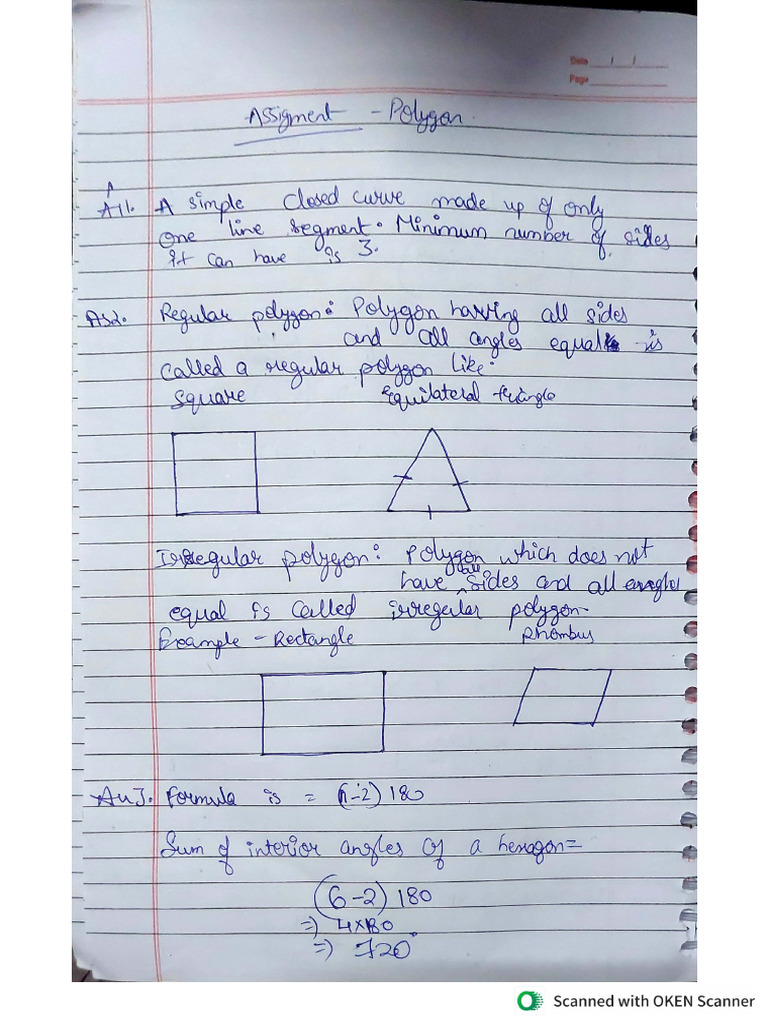 Date / /
Page
Assigment - Polygon
A
A11. A simple closed curve made up of only
one line segment. Minimum number of sides
it can have is 3.
As2. Regular polygon: Polygon having all sides
and all angles equal is
called a regular polygon like:
square Equilateral triangle
Irregular polygon: Polygon which does not
have all sides and all angles
equal is called irregular polygon
Example - Rectangle Rhombus
An3. Formula is = (n-2) 180
Sum of interior angles of a hexagon =
(6-2) 180
=> 4x180
=> 720°
Scanned with OKEN Scanner